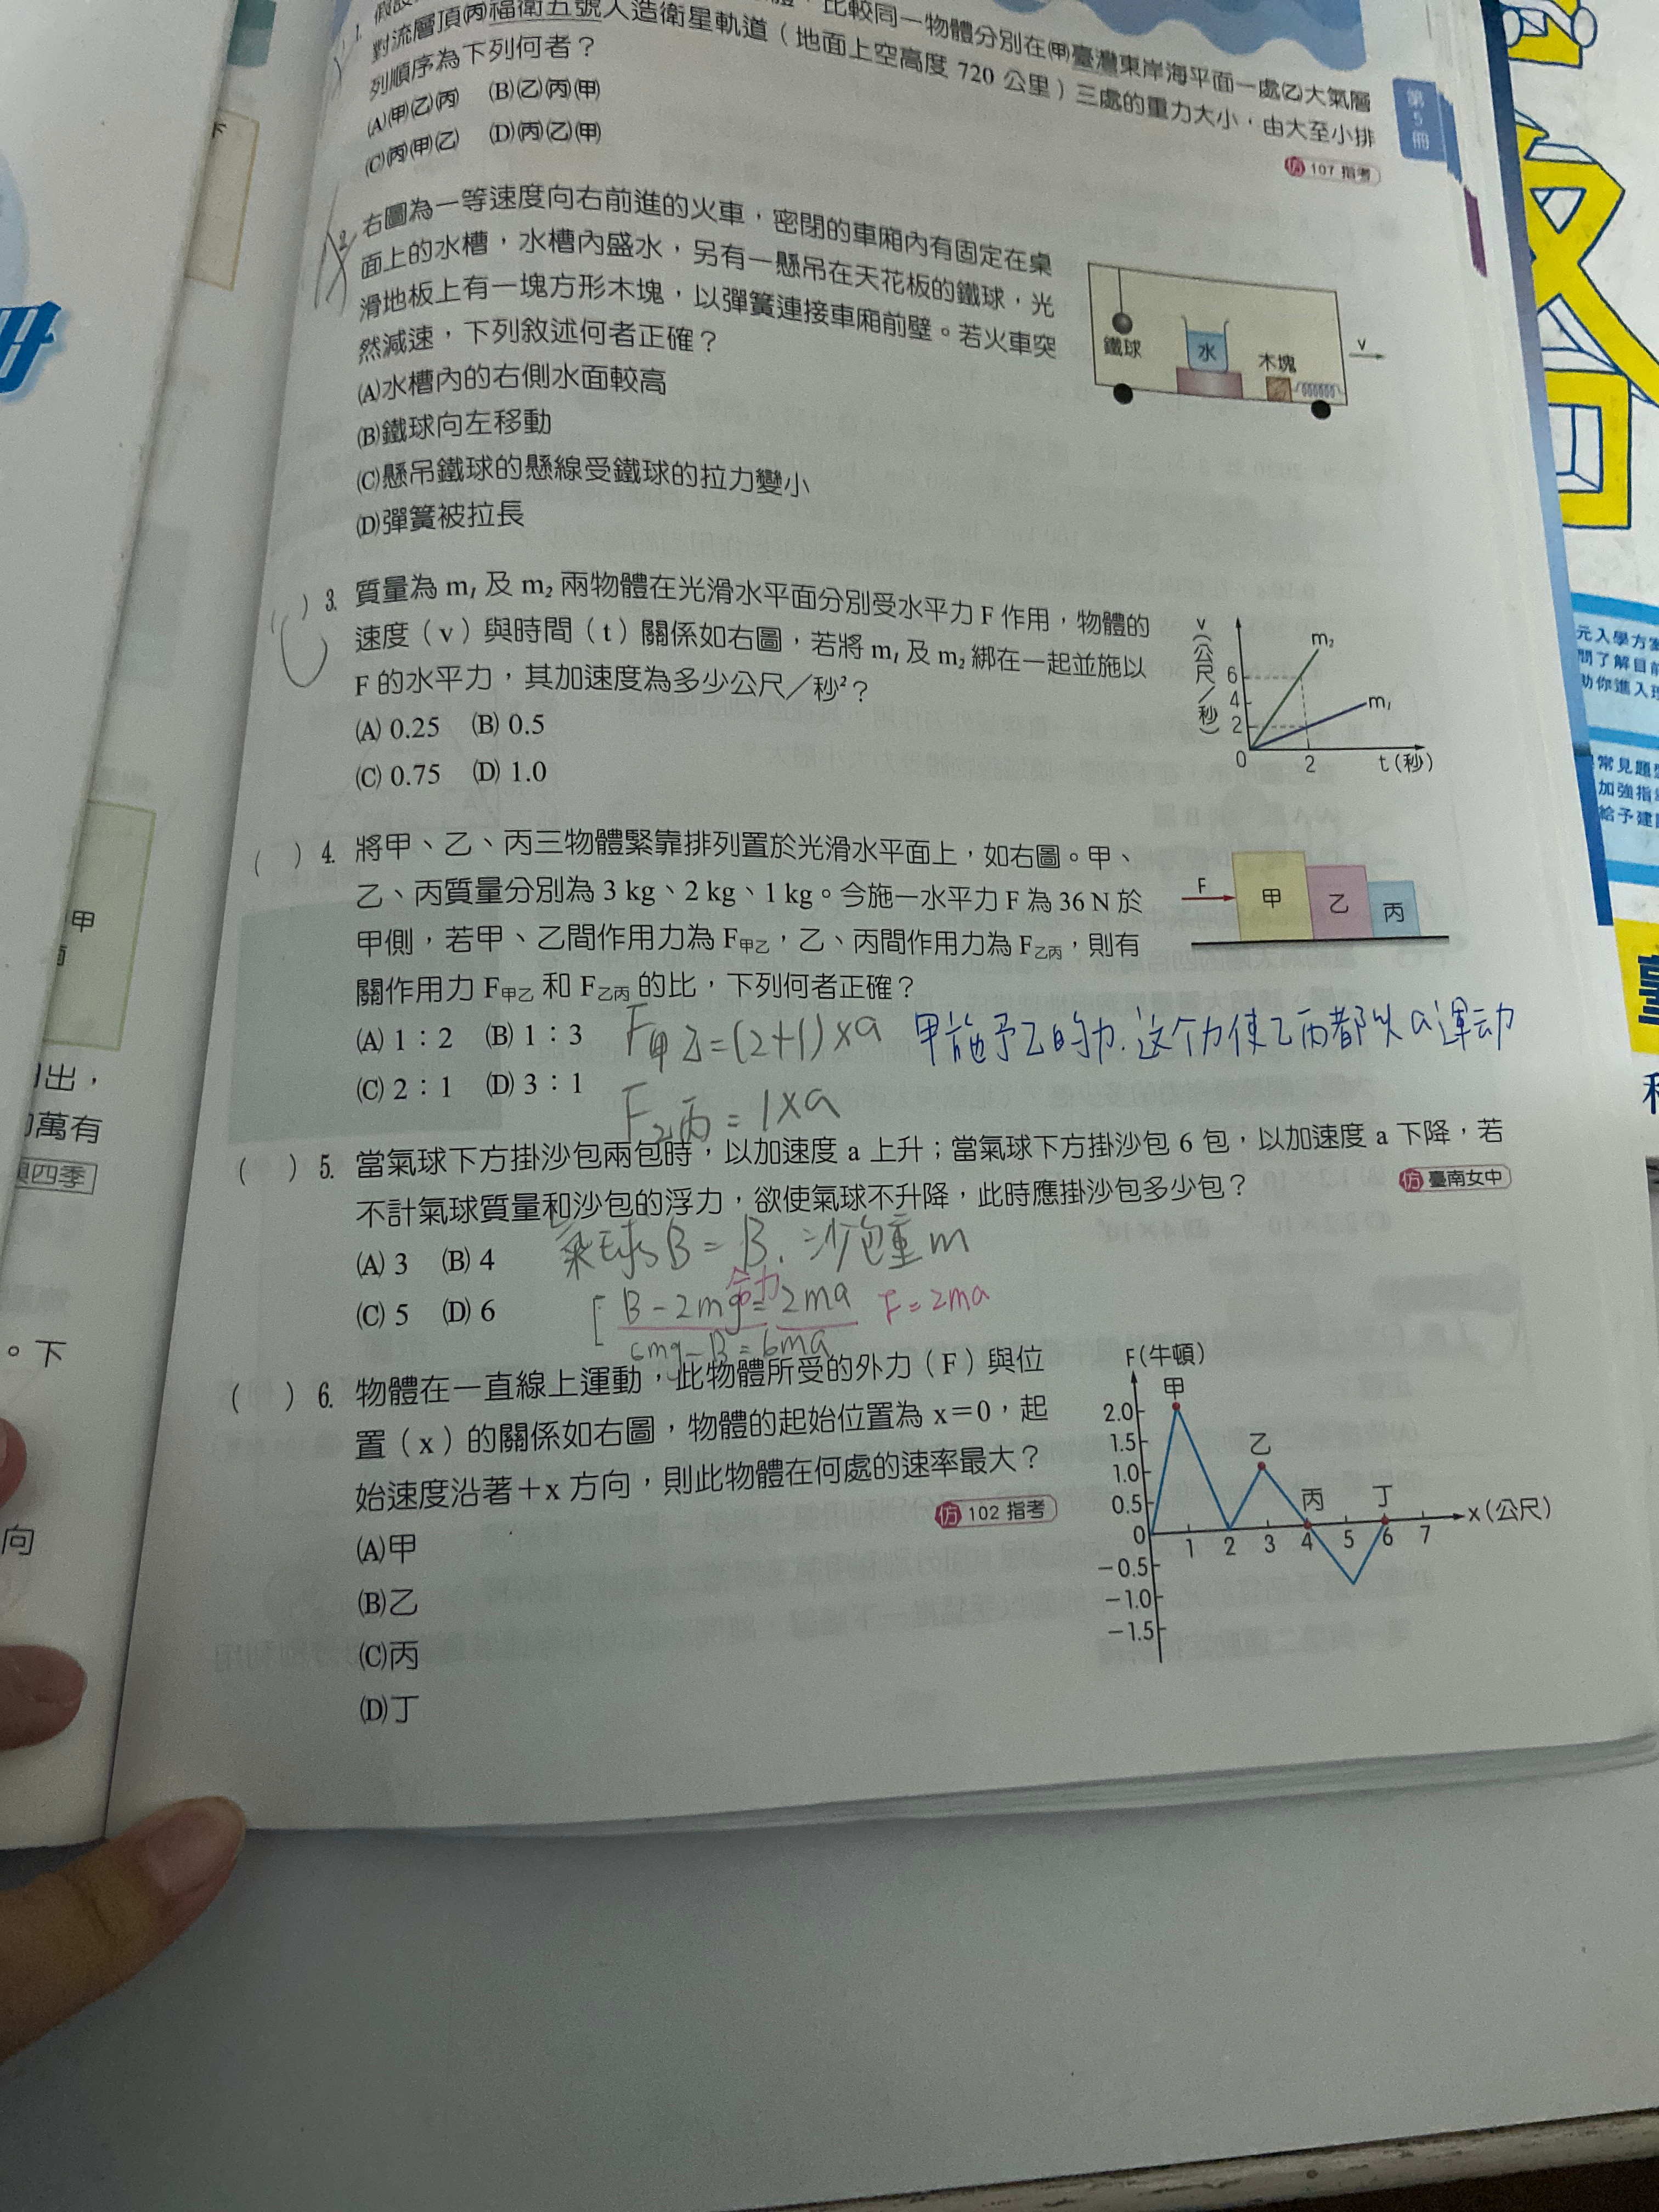 比較同一物體分別在㈙臺灣東岸海平面一處㈚大氣層
對流層頂㈛福衛五號人造衛星軌道（地面上空高度 720 公里）三處的重力大小，由大至小排
列順序為下列何者？
(A)(甲)(乙)(丙) (B)(乙)(丙)(甲)
(C)(丙)(甲)(乙) (D)(丙)(乙)(甲)
仿 107 指考
第5冊
右圖為一等速度向右前進的火車，密閉的車廂內有固定在桌
面上的水槽，水槽內盛水，另有一懸吊在天花板的鐵球，光
滑地板上有一塊方形木塊，以彈簧連接車廂前壁。若火車突
然減速，下列敘述何者正確？
(A)水槽內的右側水面較高
(B)鐵球向左移動
(C)懸吊鐵球的懸線受鐵球的拉力變小
(D)彈簧被拉長
鐵球 水 木塊 v
( ) 3. 質量為 m₁ 及 m₂ 兩物體在光滑水平面分別受水平力 F 作用，物體的
速度（v）與時間（t）關係如右圖，若將 m₁ 及 m₂ 綁在一起並施以
F 的水平力，其加速度為多少公尺／秒²？
(A) 0.25 (B) 0.5
(C) 0.75 (D) 1.0
v（公尺／秒）
m₂
6
4
m₁
2
0 2 t(秒)
( ) 4. 將甲、乙、丙三物體緊靠排列置於光滑水平面上，如右圖。甲、
乙、丙質量分別為 3 kg、2 kg、1 kg。今施一水平力 F 為 36 N 於
甲側，若甲、乙間作用力為 F甲乙，乙、丙間作用力為 F乙丙，則有
關作用力 F甲乙 和 F乙丙 的比，下列何者正確？
(A) 1：2 (B) 1：3
(C) 2：1 (D) 3：1
F 甲 乙 丙
F甲乙=(2+1)×a 甲施予乙的力,这个力使乙丙都以a運动
F乙丙=1×a
( ) 5. 當氣球下方掛沙包兩包時，以加速度 a 上升；當氣球下方掛沙包 6 包，以加速度 a 下降，若
不計氣球質量和沙包的浮力，欲使氣球不升降，此時應掛沙包多少包？
仿 臺南女中
(A) 3 (B) 4
(C) 5 (D) 6
氣球B=B. 沙包重m
合力
[ B-2mg=2ma F=2ma
6mg-B=6ma
( ) 6. 物體在一直線上運動，此物體所受的外力（F）與位
置（x）的關係如右圖，物體的起始位置為 x＝0，起
始速度沿著＋x 方向，則此物體在何處的速率最大？
仿 102 指考
(A)甲
(B)乙
(C)丙
(D)丁
F(牛頓)
甲
2.0
1.5
乙
1.0
0.5
丙 丁
0 1 2 3 4 5 6 7 x(公尺)
-0.5
-1.0
-1.5
甲
出，
萬有
與四季
。下
向
元入學方案
常見題型
加強指
給予建